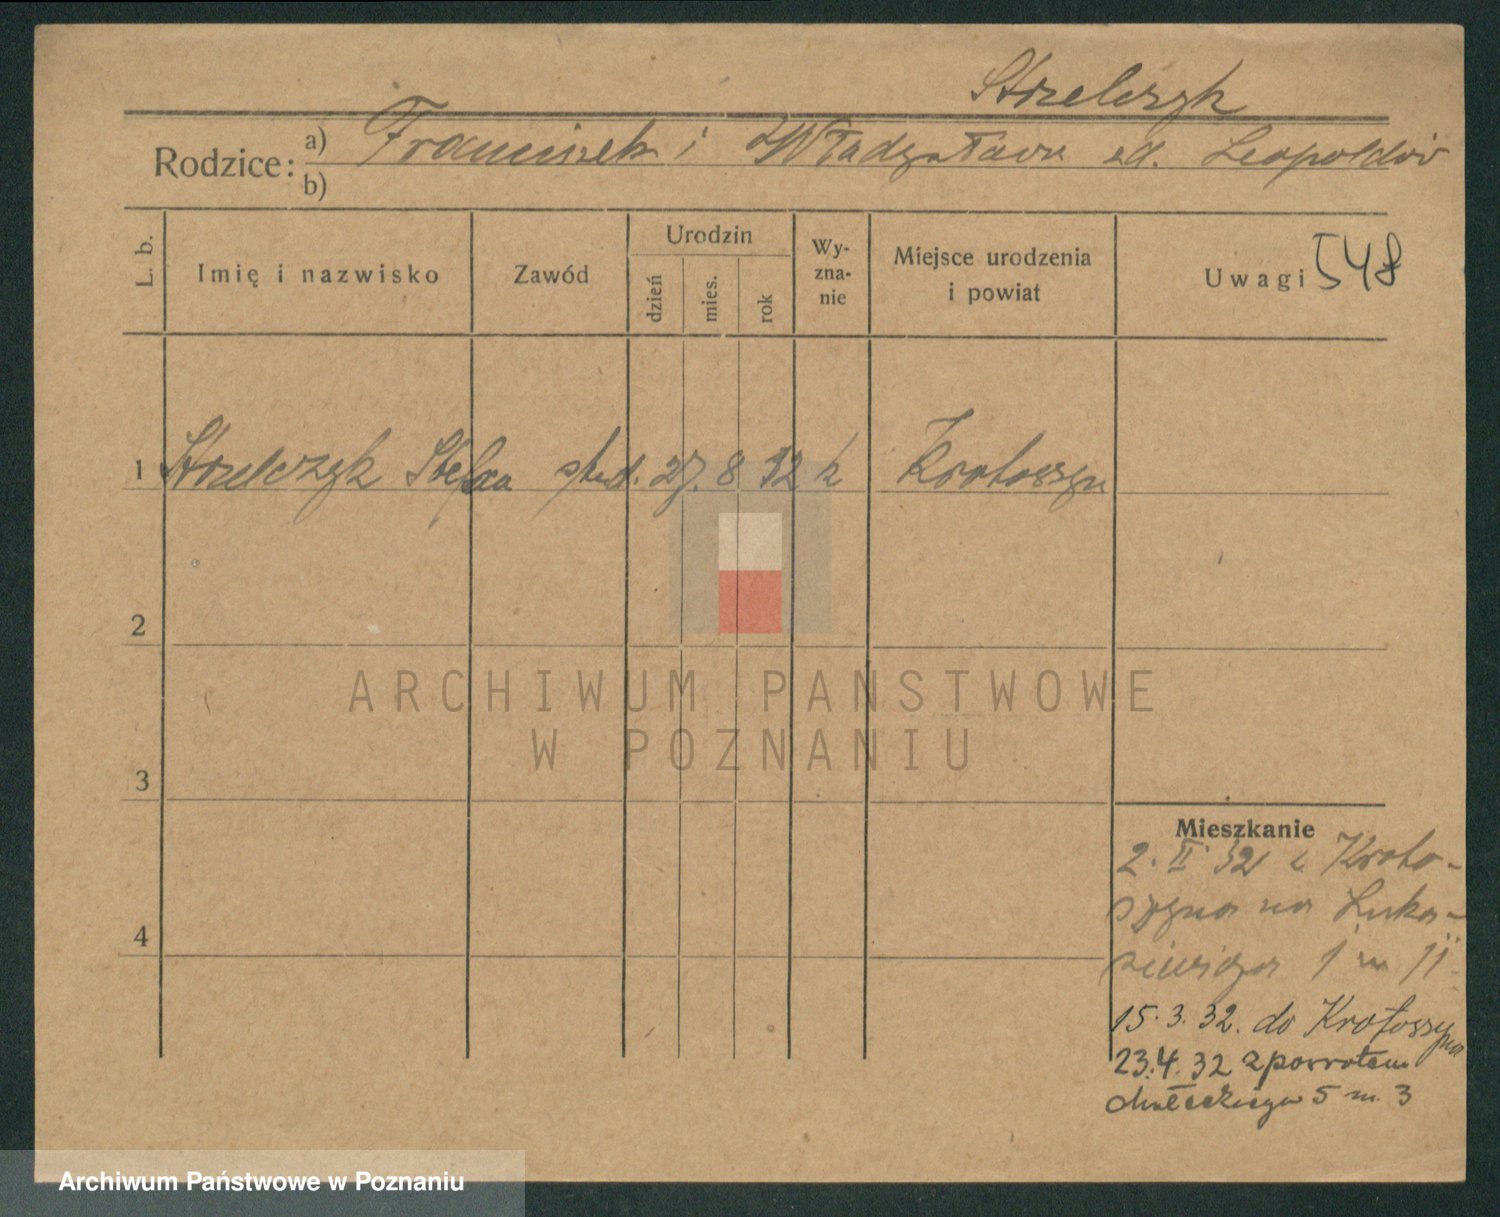 Strzelczyk
Rodzice: a) Franciszek i Władysława zd. Leopoldów
b)
L. b. Imię i nazwisko Zawód Urodzin dzień mies. rok Wy-zna-nie Miejsce urodzenia i powiat Uwagi 548
1 Strzelczyk Stefan stud. 27. 8 12 k Krotoszyn
2
ARCHIWUM PAŃSTWOWE
W POZNANIU
3
Mieszkanie
2. II 32 z Kroto-
szyna na Łuka-
4
siewicza 1 m 11
15. 3. 32. do Krotoszyna
23. 4. 32 z powrotem
5 m. 3
Archiwum Państwowe w Poznaniu